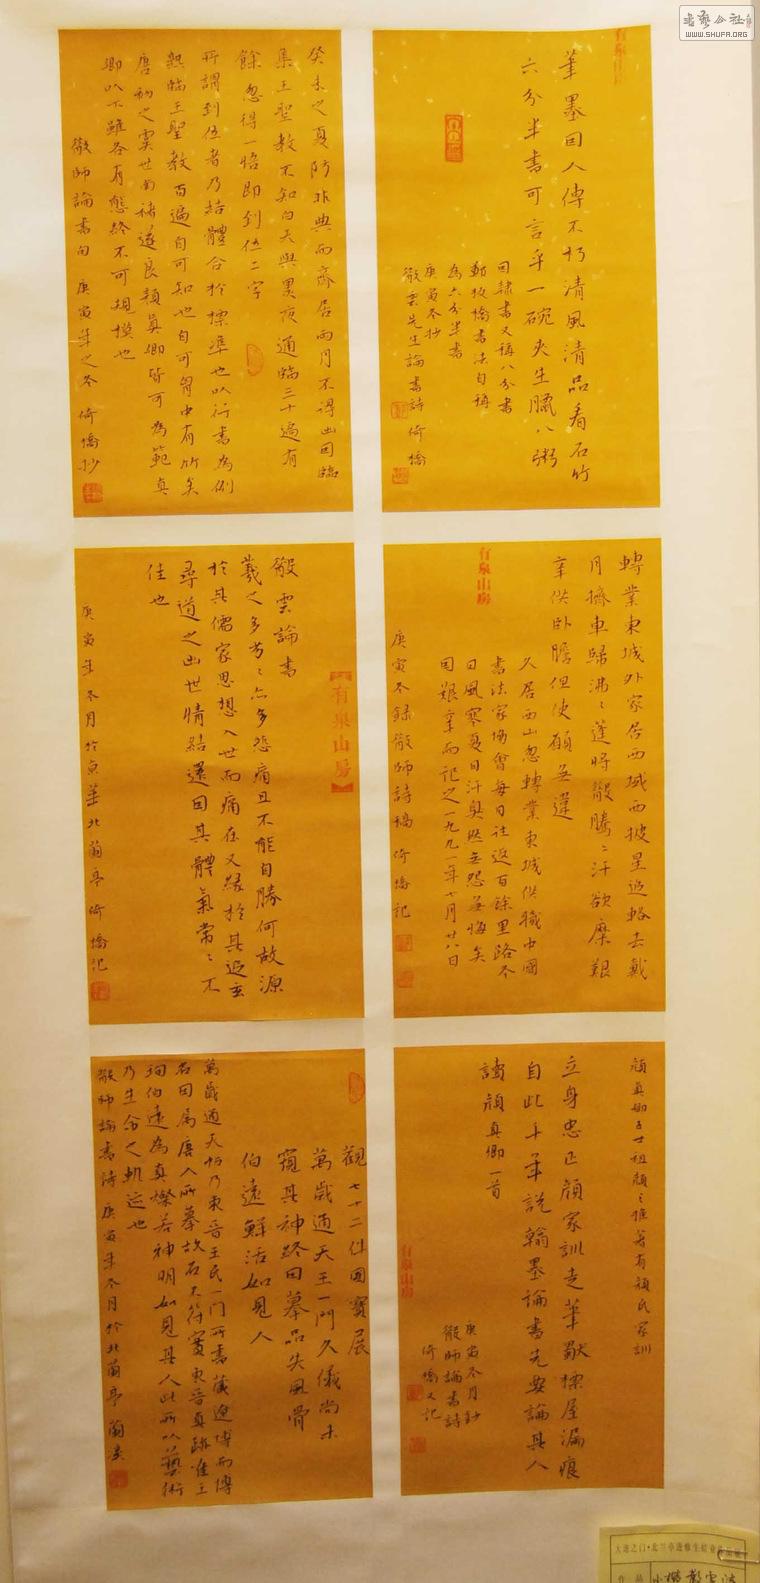 筆墨因人傳不朽清風清品看石竹
六分半書可言乎一碗夾生臘八粥
因隸書又稱八分書
鄭板橋書法自稱
為六分半書
庚寅冬抄
散雲先生論書詩倚橋
癸未之夏防非典而齋居兩月不得出因臨
集王聖教不知白天與黑夜通臨三十遍有
餘忽得一悟即到位二字
所謂到位者乃結體合於標準也以行書為例
熟臨王聖教百遍自可知也自可胸中有竹矣
唐初之虞世南褚遂良顏真卿皆可為範真
卿以下雖各有態終不可規模也
散師論書句 庚寅年之冬 倚橋抄
有泉山房
轉業東城外家居西城西披星追輅去戴
月擠車歸沸沸蓬將散騰騰汗欲糜艱
辛供卧膽但使願無違
久居西山忽轉業東城供職中國
書法家協會每日往返百餘里路冬
日風寒夏日汗臭然無怨無悔矣
因艱辛而記之一九九一年七月廿八日
庚寅冬錄散師詩稿倚橋記
有泉山房
散雲論書
羲之多当々亦多怨痛且不能自勝何故源
於其儒家思想入世而痛在又緣於其追玄
尋道之出世情結還因其體氣常々不
佳也
庚寅年冬月於京華北蘭亭倚橋記
顏真卿五世祖顏之推著有顏氏家訓
立身忠正顏家訓走筆猷標屋漏痕
自此千年說翰墨論書先要論其人
讀顏真卿一首
有泉山房
庚寅冬月鈔
散師論書詩
倚橋又記
觀七十二件國寶展
萬歲通天王一門久儀尚未
窺其神路因摹品失風骨
伯遠鮮活如見人
萬歲通天帖乃東晉王氏一門所書葳遼博而傳
石因為唐人所摹故石不符實東晉真跡唯王
珣伯遠為真檪若神明如見其人此所以藝術
乃生命之軌迹也
散師論書詩庚寅年冬月於北蘭亭蘭溪
書藝公社
WWW.SHUFA.ORG